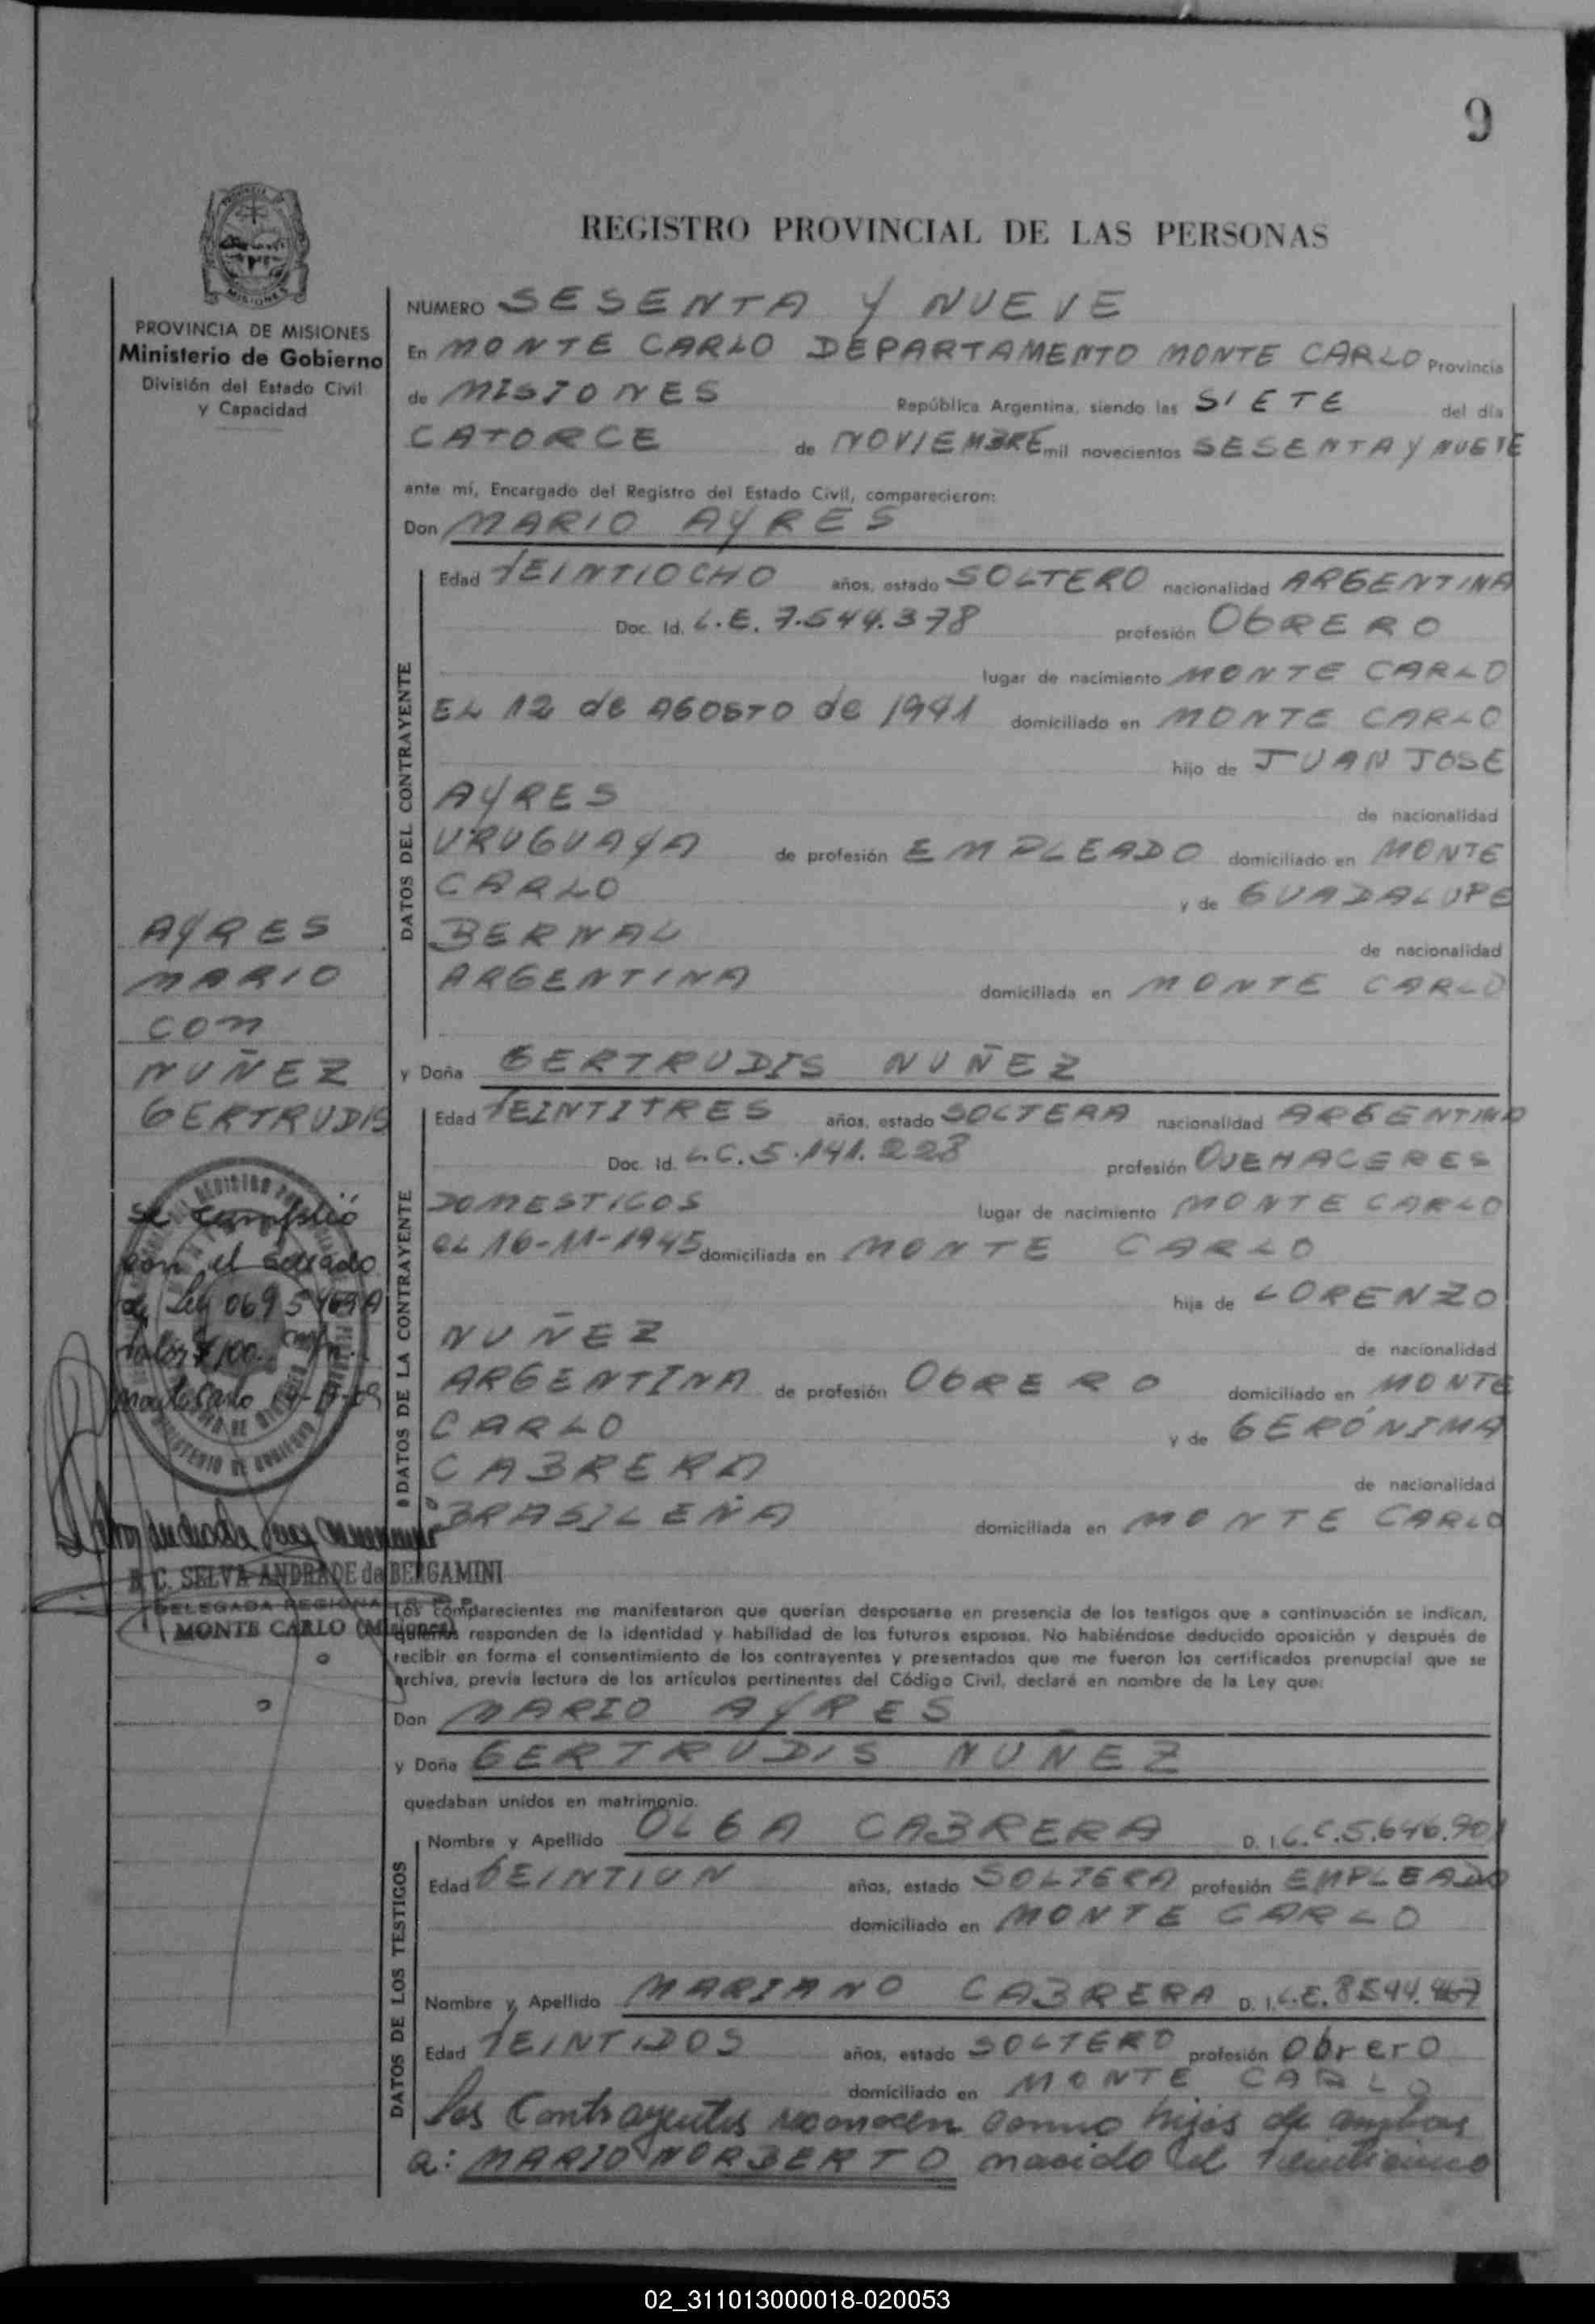 9
PROVINCIA DE MISIONES
Ministerio de Gobierno
División del Estado Civil
y Capacidad
REGISTRO PROVINCIAL DE LAS PERSONAS
NUMERO SESENTA Y NUEVE
En MONTE CARLO DEPARTAMENTO MONTE CARLO Provincia
de MISIONES República Argentina, siendo las SIETE del día
CATORCE de NOVIEMBRE mil novecientos SESENTA Y NUEVE
ante mí, Encargado del Registro del Estado Civil, comparecieron:
Don MARIO AYRES
DATOS DEL CONTRAYENTE
Edad VEINTIOCHO años, estado SOLTERO nacionalidad ARGENTINA
Doc. Id. L.E. 7.544.378 profesión OBRERO
lugar de nacimiento MONTE CARLO
EL 12 de AGOSTO de 1941 domiciliado en MONTE CARLO
hijo de JUAN JOSE
AYRES de nacionalidad
URUGUAYA de profesión EMPLEADO domiciliado en MONTE
CARLO y de GUADALUPE
BERNAL de nacionalidad
ARGENTINA domiciliada en MONTE CARLO
AYRES
MARIO
CON
NUÑEZ
GERTRUDIS
y Doña GERTRUDIS NUÑEZ
DATOS DE LA CONTRAYENTE
Edad VEINTITRES años, estado SOLTERA nacionalidad ARGENTINA
Doc. Id. L.C. 5.141.228 profesión QUEHACERES
DOMESTICOS lugar de nacimiento MONTE CARLO
EL 16-11-1945 domiciliada en MONTE CARLO
hija de LORENZO
NUÑEZ de nacionalidad
ARGENTINA de profesión OBRERO domiciliado en MONTE
CARLO y de GERÓNIMA
CABRERA de nacionalidad
BRASILEÑA domiciliada en MONTE CARLO
se cumplió
con el sellado
de Ley 0695469A
valor $ 100.
SELVA ANDRADE de BERGAMINI
DELEGADA REGIONAL
MONTE CARLO (Misiones)
Los comparecientes me manifestaron que querían desposarse en presencia de los testigos que a continuación se indican,
quienes responden de la identidad y habilidad de los futuros esposos. No habiéndose deducido oposición y después de
recibir en forma el consentimiento de los contrayentes y presentados que me fueron los certificados prenupcial que se
archiva, previa lectura de los artículos pertinentes del Código Civil, declaré en nombre de la Ley que:
Don MARIO AYRES
y Doña GERTRUDIS NUÑEZ
quedaban unidos en matrimonio.
DATOS DE LOS TESTIGOS
Nombre y Apellido OLGA CABRERA D. I. L.C. 5.646.901
Edad VEINTIUN años, estado SOLTERA profesión EMPLEADO
domiciliado en MONTE CARLO
Nombre y Apellido MARIANO CABRERA D. I. L.E. 8.544.467
Edad VEINTIDOS años, estado SOLTERO profesión Obrero
domiciliado en MONTE CARLO
Los Contrayentes reconocen como hijos de ambos
a: MARIO NORBERTO nacido el veinticinco
02_311013000018-020053